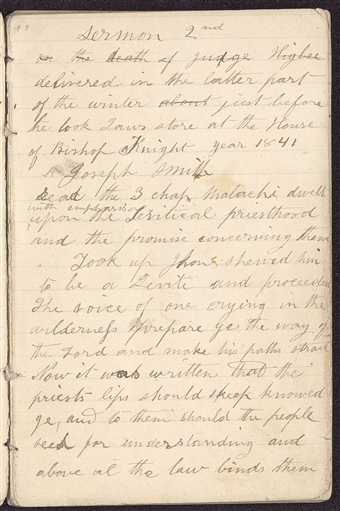 sermon 2nd
on the death of judge Higbee
delivered in the latter part
of the winter about just before
he took Laws store at the House
of Bishop Knight year 1841
Joseph Smith
Read the 3 chap. Malachi dwelt
with emphasis
upon the Levitical priesthood
and the promise concerning them
Took up Jhon shewed him
to be a Levite and proceeded
The voice of one crying in the
wilderness Prepare ye the way of
the Lord and make his paths strait
Now it was written that the
priests lips should keep knowled
ge, and to them should the people
seek for understanding and
above al the law binds them